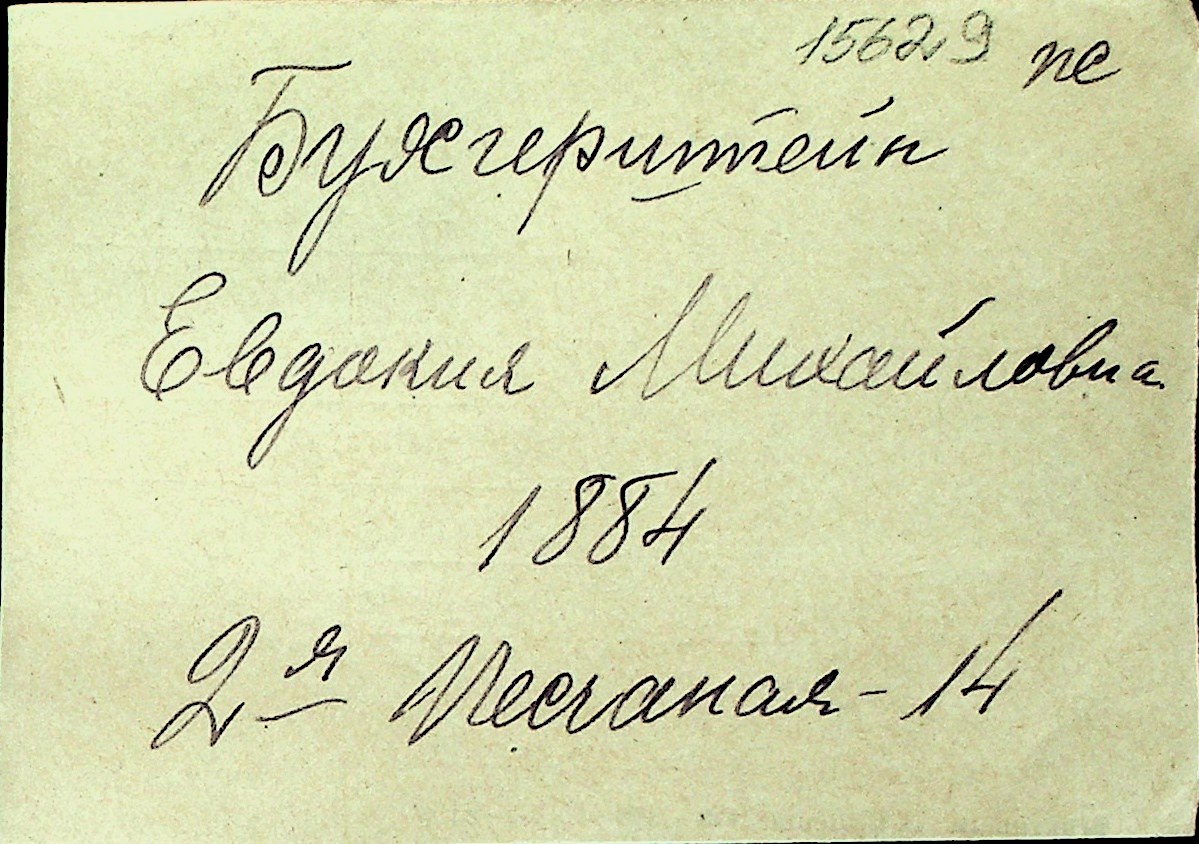 15629 пе
Бухгерштейн
Евдокия Михайловна
1884
2-я Песчаная - 14